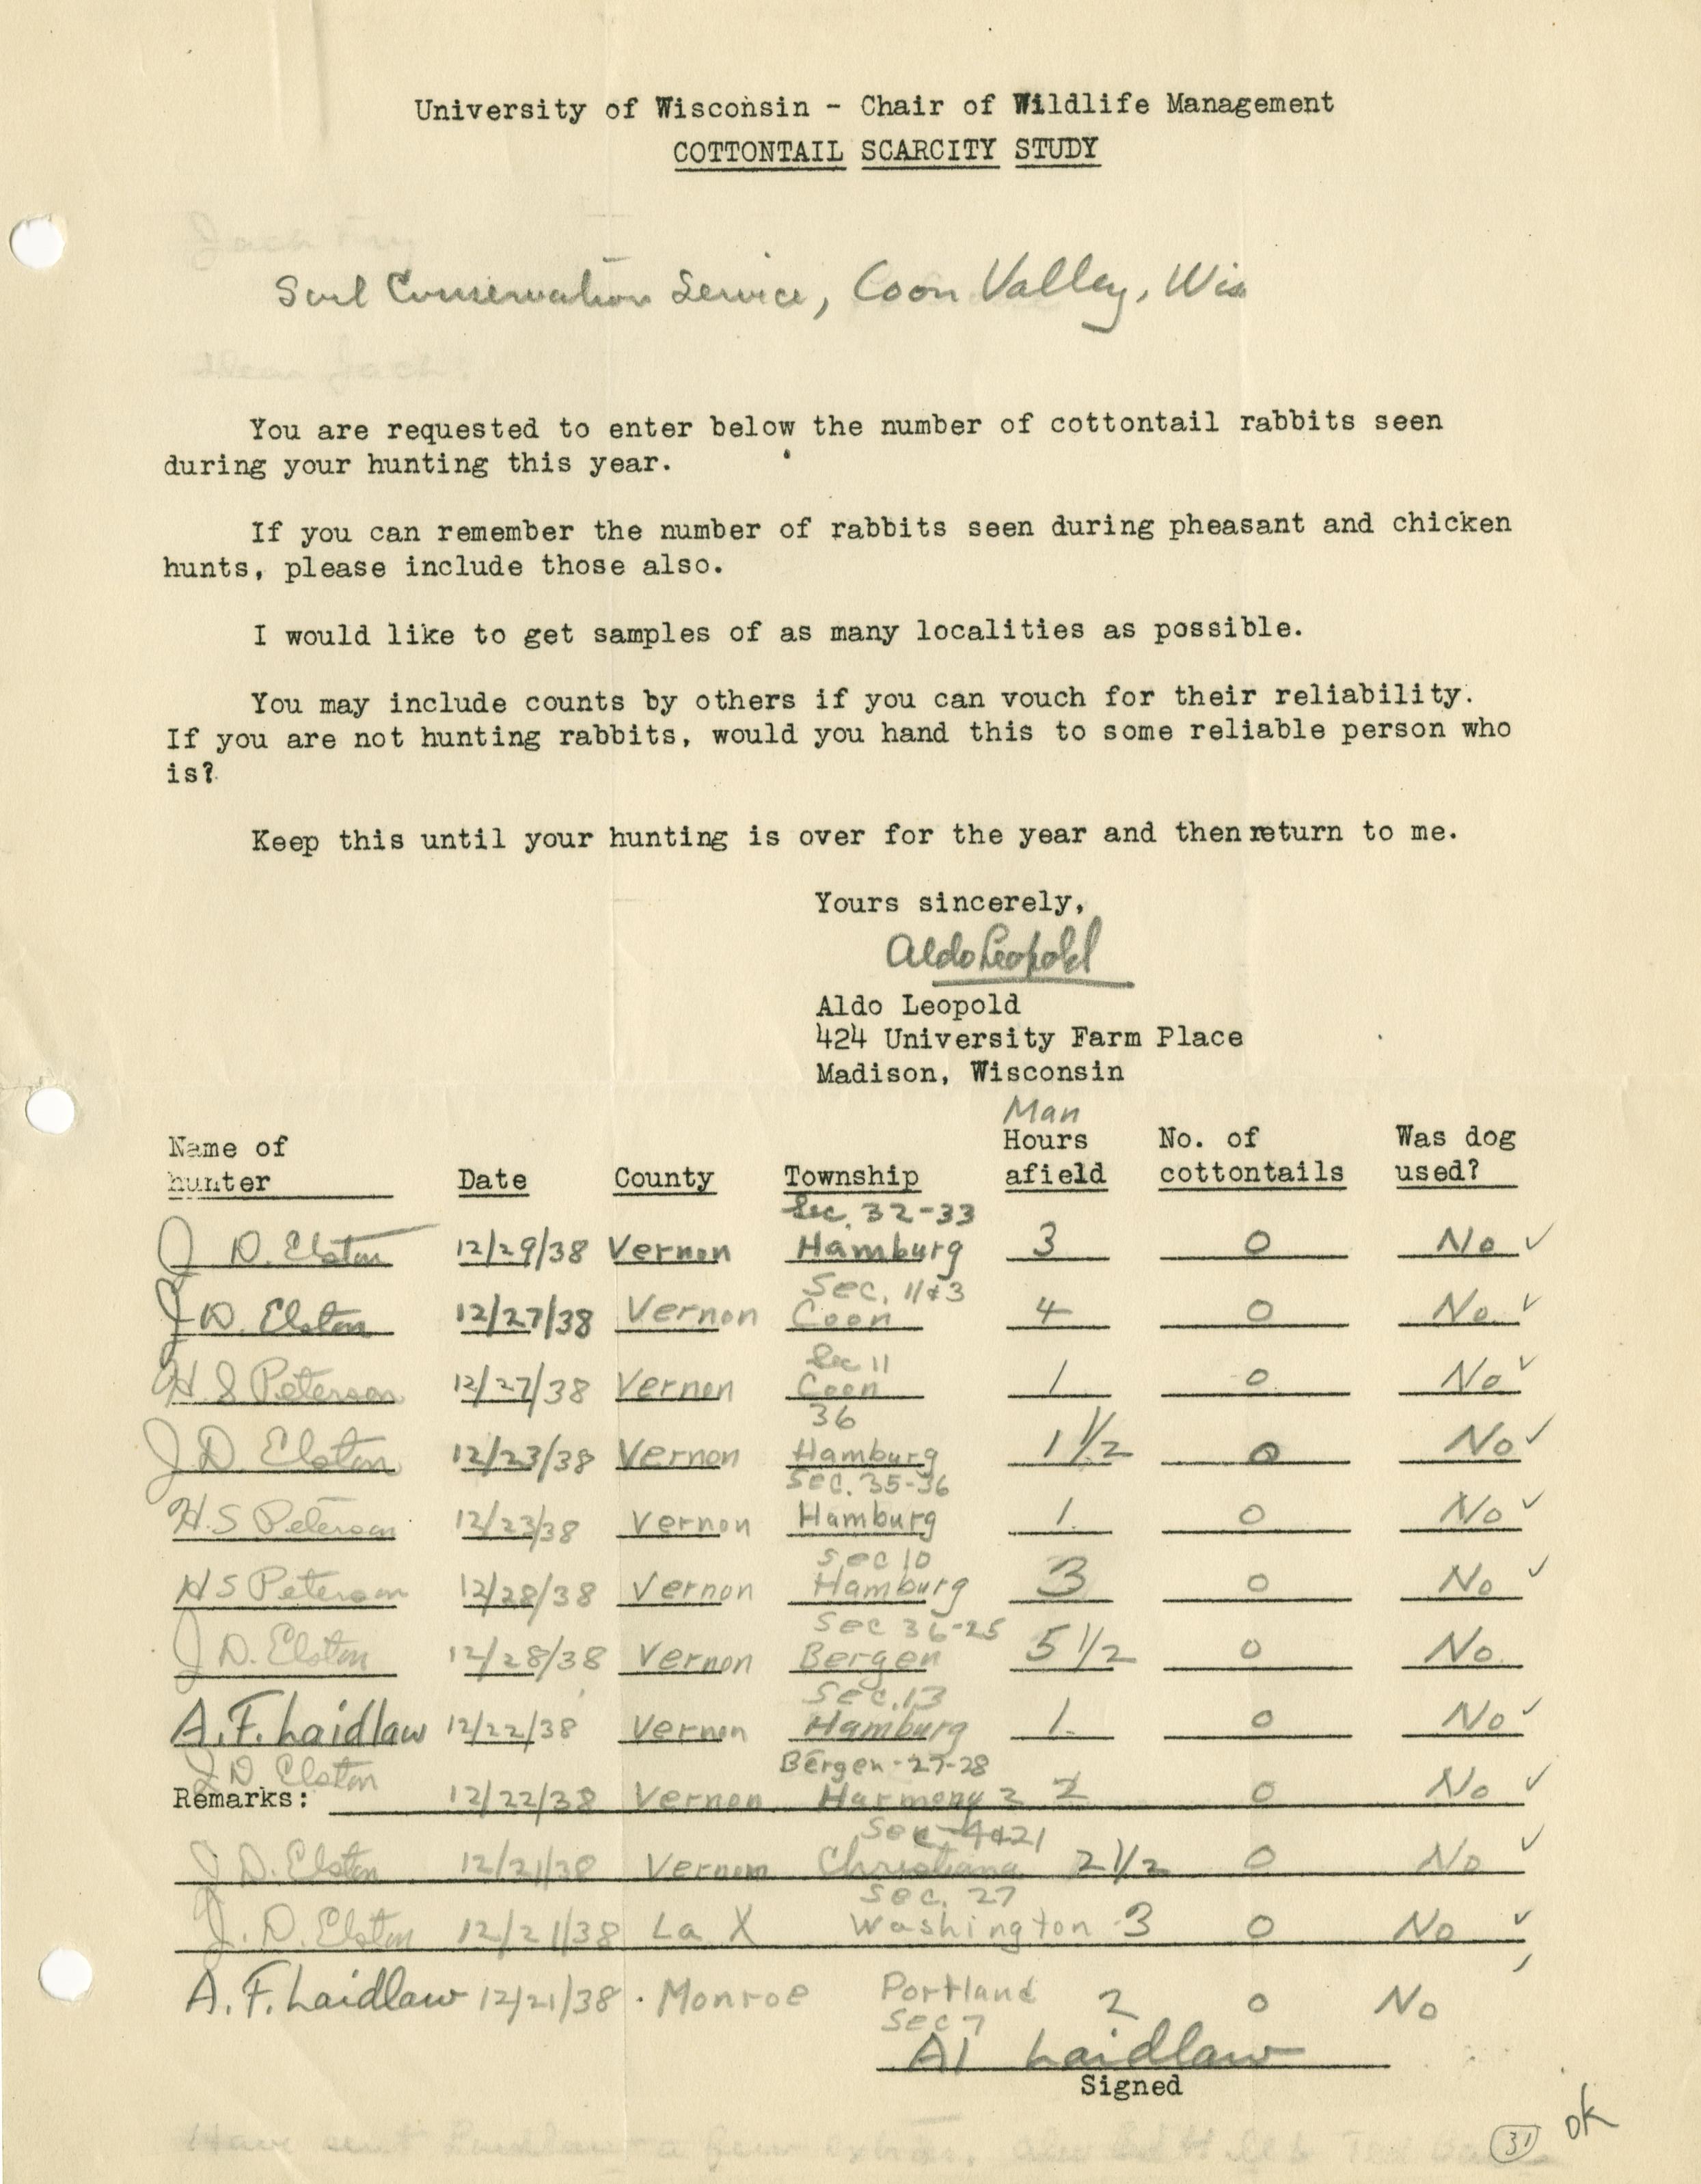 University of Wisconsin - Chair of Wildlife Management
COTTONTAIL SCARCITY STUDY
Jack
Soil Conservation Service, Coon Valley, Wis
Dear Jack:
You are requested to enter below the number of cottontail rabbits seen
during your hunting this year.
If you can remember the number of rabbits seen during pheasant and chicken
hunts, please include those also.
I would like to get samples of as many localities as possible.
You may include counts by others if you can vouch for their reliability.
If you are not hunting rabbits, would you hand this to some reliable person who
is?
Keep this until your hunting is over for the year and then return to me.
Yours sincerely,
Aldo Leopold
Aldo Leopold
424 University Farm Place
Madison, Wisconsin
Man
Name of Hours No. of Was dog
hunter Date County Township afield cottontails used?
Sec. 32-33
J D. Elston 12/29/38 Vernon Hamburg 3 0 No ✓
Sec. 11&3
J D. Elston 12/27/38 Vernon Coon 4 0 No. ✓
Sec 11
H. S Peterson 12/27/38 Vernon Coon 1 0 No ✓
36
J D Elston 12/23/38 Vernon Hamburg 1 1/2 0 No ✓
Sec. 35-36
H. S Peterson 12/23/38 Vernon Hamburg 1. 0 No ✓
Sec 10
H S Peterson 12/28/38 Vernon Hamburg 3 0 No ✓
Sec 36-25
J D. Elston 12/28/38 Vernon Bergen 5 1/2 0 No.
Sec. 13
A. F. Laidlaw 12/22/38 Vernon Hamburg 1. 0 No ✓
J D Elston Bergen-27-28
Remarks: 12/22/38 Vernon Harmony 2 2 0 No ✓
Sec-4&21
J D. Elston 12/21/38 Vernon Christiana 2 1/2 0 No ✓
Sec. 27
J. D. Elston 12/21/38 La X Washington 3 0 No ✓
A. F. Laidlaw 12/21/38 . Monroe Portland 2 0 No
Sec 7
Al Laidlaw
Signed
Have sent a
31
ok